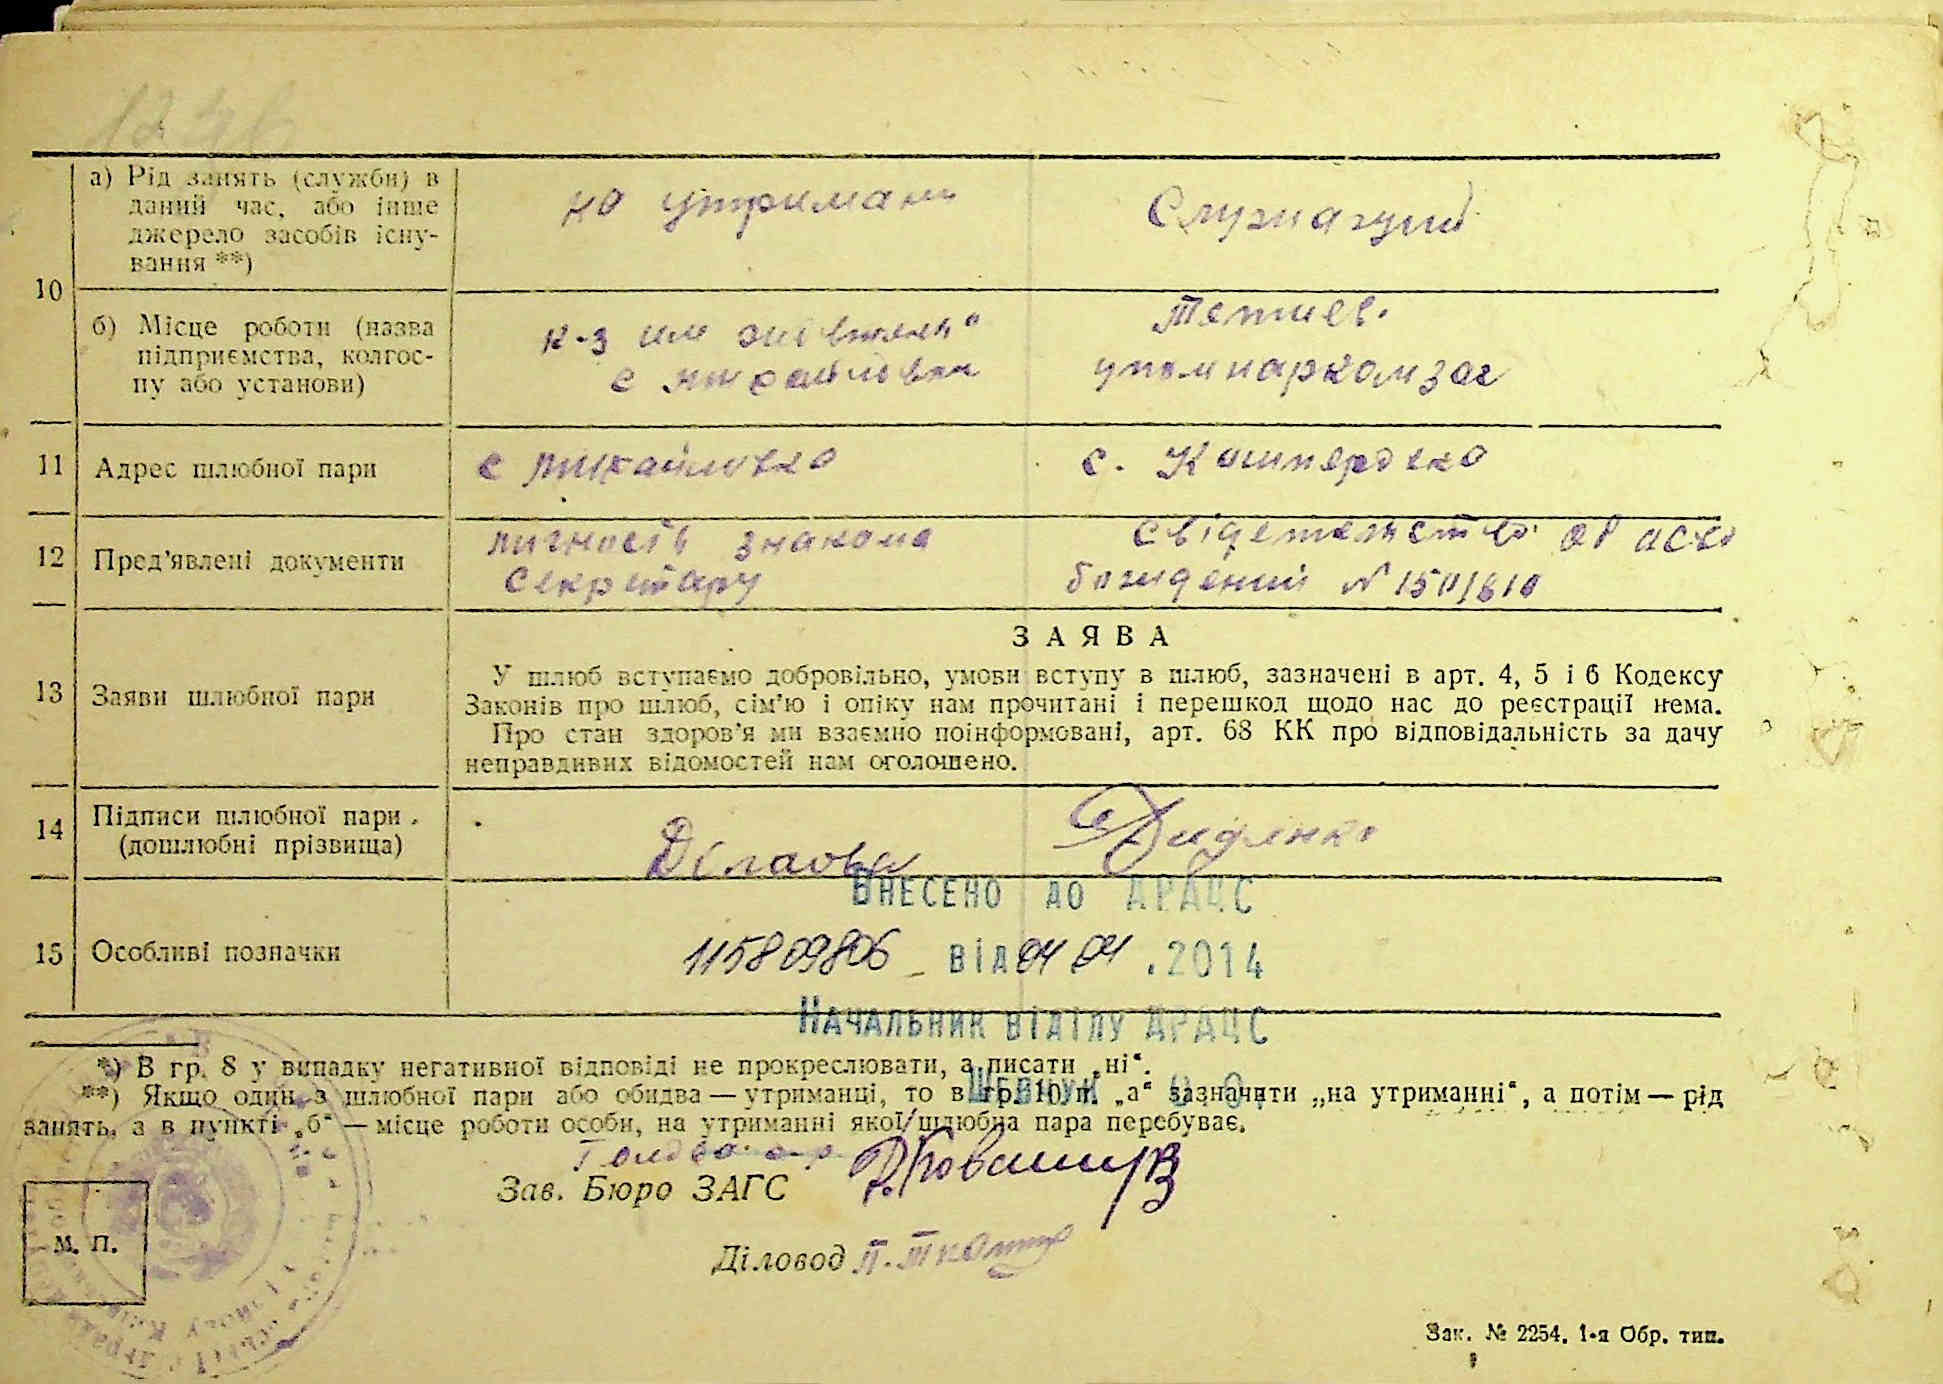 1246
10
а) Рід занять (служби) в
даний час, або інше
джерело засобів існу-
вання **)
на утримані
Служачий
б) Місце роботи (назва
підприємства, колгос-
пу або установи)
к-з им
с Михайловка
Тетиев.
упомнаркомзаг
11
Адрес шлюбної пари
с Михайловка
с. Кашперовка
12
Пред'явлені документи
личность знакома
секретару
свідетельство об осво
божидений N 1501610
13
Заяви шлюбної пари
ЗАЯВА
У шлюб вступаємо добровільно, умови вступу в шлюб, зазначені в арт. 4, 5 і 6 Кодексу
Законів про шлюб, сім'ю і опіку нам прочитані і перешкод щодо нас до реєстрації нема.
Про стан здоров'я ми взаємно поінформовані, арт. 68 КК про відповідальність за дачу
неправдивих відомостей нам оголошено.
14
Підписи шлюбної пари
(дошлюбні прізвища)
Диденко
Внесено до ДРАЦС
15
Особливі позначки
115809806 від 04 04 .2014
Начальник відділу ДРАЦС
*) В гр. 8 у випадку негативної відповіді не прокреслювати, а писати „ні“.
**) Якщо один з шлюбної пари або обидва — утриманці, то в гр. 10 п. „а“ зазначити „на утриманні“, а потім — рід
занять, а в пункті „б“ — місце роботи особи, на утриманні якої шлюбна пара перебуває.
Зав. Бюро ЗАГС
Діловод
М. П.
Зак. № 2254. 1-я Обр. тип.